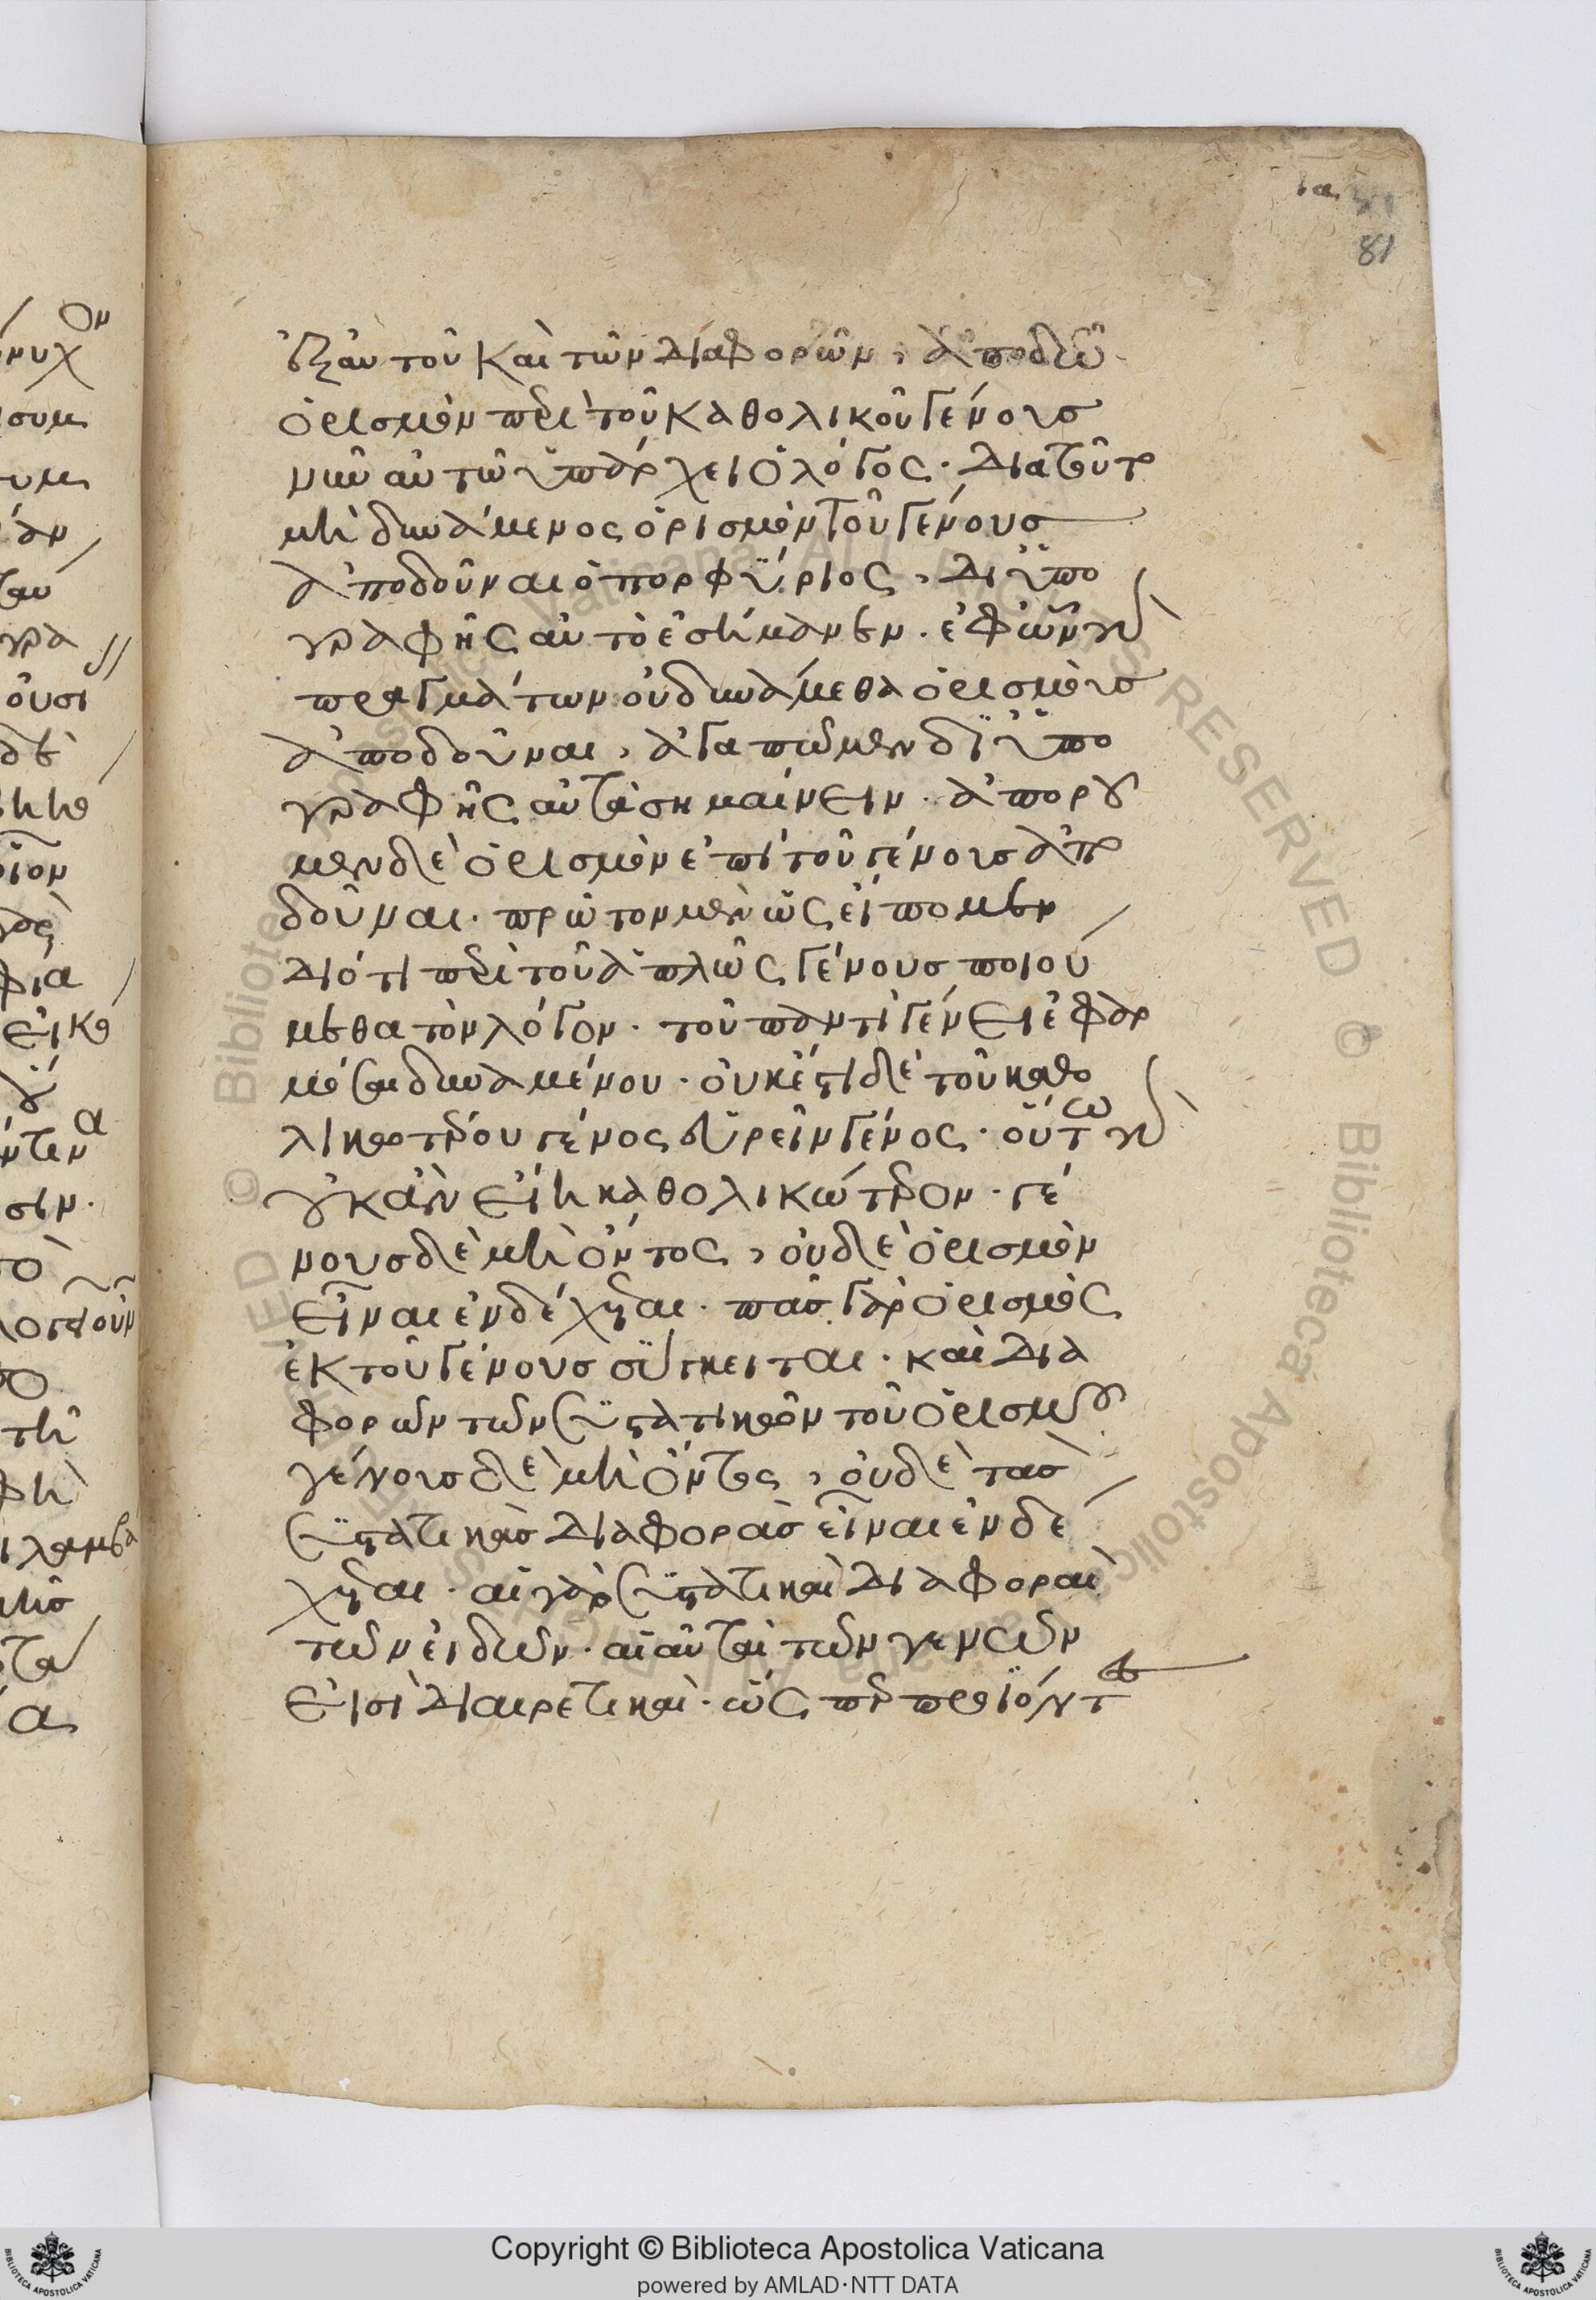 ια
81
ἐξ αὐτοῦ καὶ τῶν διαφορῶν, ἀποδῶ
ὁρισμόν περὶ τοῦ καθολικοῦ γένους
νῦν αὐτῶ ὑπάρχει ὁ λόγος. διατοῦτο
μὴ δυνάμενος ὁρισμὸν τοῦ γένους
ἀποδοῦναι ὁ πορφύριος, δι ὑπο
γραφῆς αὐτὸ ἐσήμανεν. ἐφ ὧν γὰρ
πραγμάτων οὐ δυνάμεθα ὁρισμοὺς
ἀποδοῦναι, ἀγαπῶμεν δι ὑπο
γραφῆς αὐτὰ σημαίνειν. ἀπορου
μεν δὲ ὁρισμὸν ἐπὶ τοῦ γένους ἀπο
δοῦναι. πρῶτον μὲν ὡς εἴπομεν
διότι περὶ τοῦ ἁπλῶς γένους ποιού
μεθα τὸν λόγον. τοῦ παντὶ γένει ἐφαρ
μόσαι δυναμένου. οὐκ ἔστι δὲ τοῦ καθο
λικοτέρου γένος εὑρεῖν γένος. οὕτω γὰρ
οὐκ ἂν εἴη καθολικώτερον. γέ
νους δὲ μὴ ὄντος, οὐδὲ ὁρισμὸν
εἶναι ἐνδέχεται. πᾶς γὰρ ὁρισμὸς
ἐκ τοῦ γένους σύγκειται. καὶ δια
φορῶν τῶν συστατικῶν τοῦ ὁρισμοῦ
γένους δὲ μὴ ὄντος, οὐδὲ τὰς
συστατικὰς διαφορὰς εἶναι ἐνδέ
χεται. αἱ γὰρ συστατικαὶ διαφοραὶ
τῶν εἰδῶν. αἱ αὐταὶ τῶν γενῶν
εἰσὶ διαιρετικαὶ. ὡς προϊόντες
Copyright © Biblioteca Apostolica Vaticana
powered by AMLAD·NTT DATA